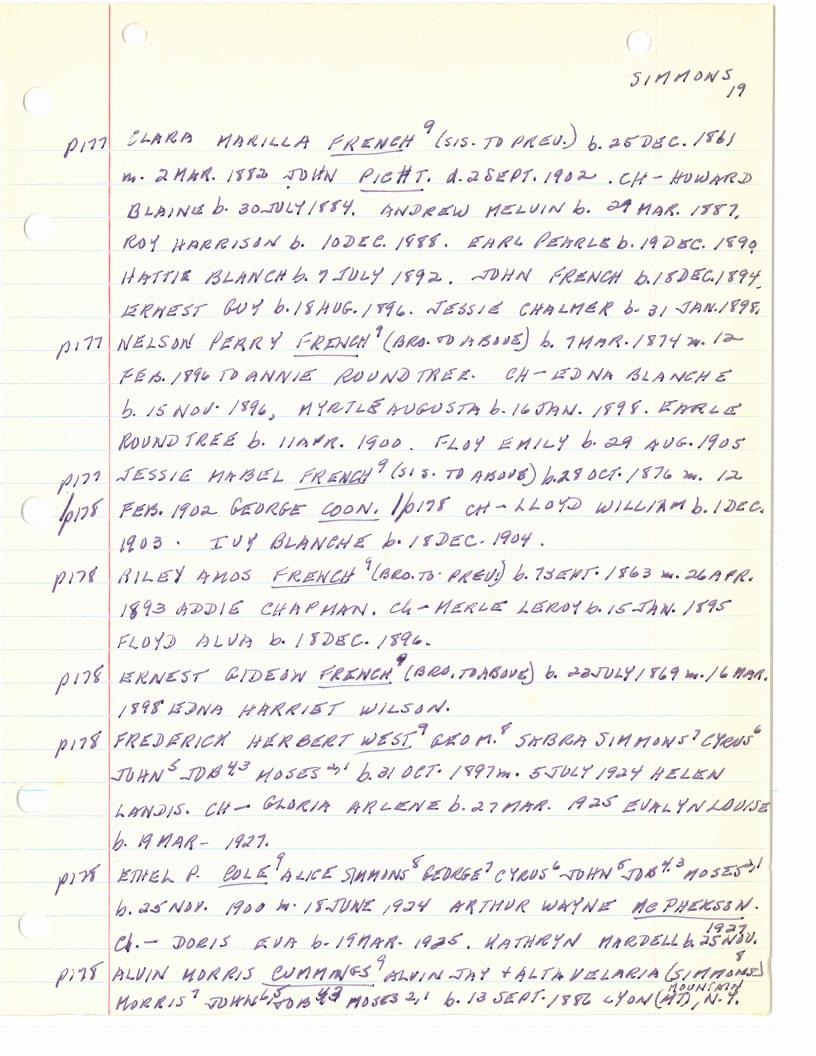 SIMMONS
19
p177 CLARA MARILLA FRENCH⁹ (SIS. TO PREV.) b. 25 DEC. 1861
m. 2 MAR. 1882 JOHN PICHT. d. 2 SEPT. 1902. CH – HOWARD
BLAINE b. 30 JULY 1884. ANDREW MELVIN b. 29 MAR. 1887.
ROY HARRISON b. 10 DEC. 1888. EARL PEARLE b. 19 DEC. 1890
HATTIE BLANCH b. 7 JULY 1892. JOHN FRENCH b. 18 DEC. 1894.
ERNEST GUY b. 18 AUG. 1896. JESSIE CHALMER b. 31 JAN. 1898.
p177 NELSON PERRY FRENCH⁹ (BRO. TO ABOVE) b. 7 MAR. 1874 m. 12
FEB. 1896 TO ANNIE ROUNDTREE. CH – EDNA BLANCHE
b. 15 NOV. 1896, MYRTLE AUGUSTA b. 16 JAN. 1898. EARLE
ROUNDTREE b. 11 APR. 1900. FLOY EMILY b. 29 AUG. 1905
p177 JESSIE MABEL FRENCH⁹ (SIS. TO ABOVE) b. 28 OCT. 1876 m. 12
/p178 FEB. 1902 GEORGE COON. /p178 CH – LLOYD WILLIAM b. 1 DEC.
1903. IVY BLANCHE b. 18 DEC. 1904.
p178 RILEY AMOS FRENCH⁹ (BRO. TO. PREV.) b. 7 SEPT. 1863 m. 26 APR.
1893 ADDIE CHAPMAN. Ch – MERLE LEROY b. 15 JAN. 1895
FLOYD ALVA b. 18 DEC. 1896.
p178 ERNEST GIDEON FRENCH⁹ (BRO. TO ABOVE) b. 22 JULY 1869 m. 16 MAR.
1898 EDNA HARRIET WILSON.
p178 FREDERICK HERBERT WEST⁹ GEO M.⁸ SABRA SIMMONS⁷ CYRUS⁶
JOHN⁵ JOB⁴,³ MOSES²,¹ b. 31 OCT. 1897 m. 5 JULY 1924 HELEN
LANDIS. CH – GLORIA ARLENE b. 27 MAR. 1925 EVALYN LOUISE
b. 19 MAR – 1927.
p178 ETHEL P. COLE⁹ ALICE SIMMONS⁸ GEORGE⁷ CYRUS⁶ JOHN⁵ JOB⁴,³ MOSES²,¹
b. 25 NOV. 1900 m. 18 JUNE 1924 ARTHUR WAYNE MCPHERSON.
Ch. – DORIS EVA b. 19 MAR. 1925. KATHRYN MARDELL b. 25 NOV. 1927
p178 ALVIN MORRIS CUMMINGS⁹ ALVIN JAY + ALTA VELARIA (SIMMONS)⁸
MORRIS⁷ JOHN⁶,⁵ JOB⁴,³ MOSES²,¹ b. 13 SEPT. 1886 LYON (MT) MOUNTAIN, N.Y.